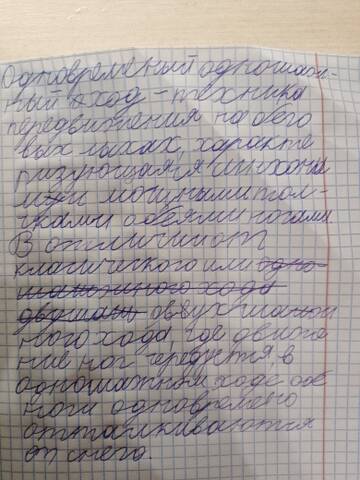 Одновременый одношаж-
ный ход - техника
передвижения на бего
вых лыхах, характе
ризующаяся
мощными тол-
чками обеями ногами
В отличии от
класического или одно
шажного хода
двушаж двухшаж
ного хода, где движе
ние ног чередуется, в
одношажном ходе обе
ноги одновремено
отталкиваются
от снега